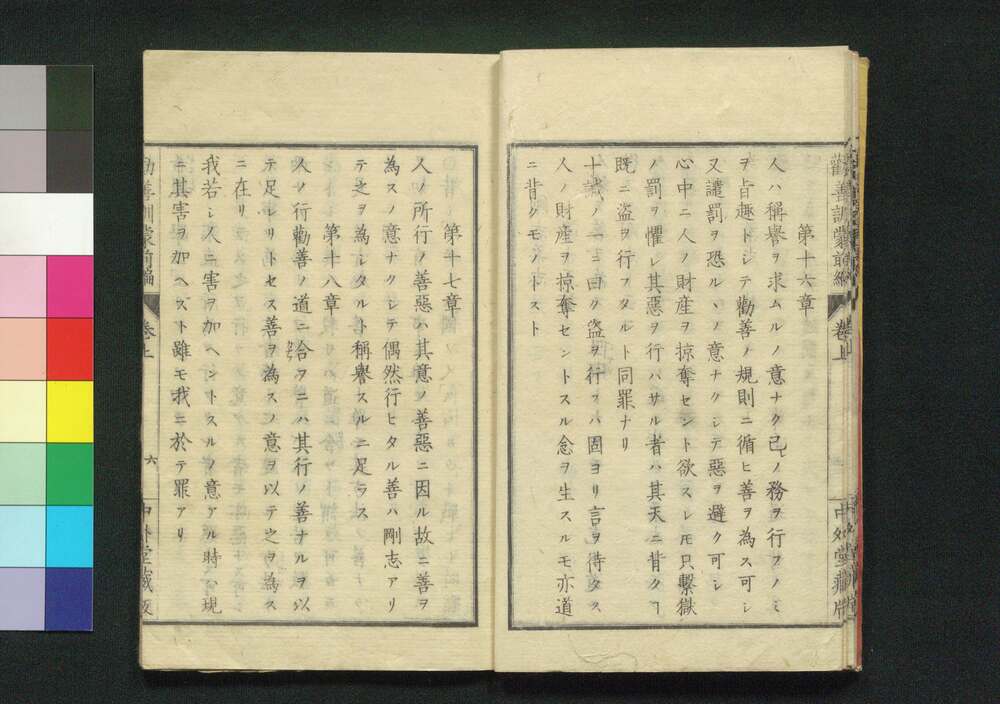 勸善訓蒙前編
卷上
中外堂藏版
第十六章
人ハ稱譽ヲ求ムルノ意ナク己レノ務ヲ行フノミ
ヲ旨趣トシテ勸善ノ規則ニ循ヒ善ヲ為ス可シ
又譴罰ヲ恐ルヽノ意ナクシテ惡ヲ避ク可シ
心中ニ人ノ財産ヲ掠奪セント欲スレ𪜈只繫獄
ノ罰ヲ懼レ其惡ヲ行ハサル者ハ其天ニ背クヿ
既ニ盗ヲ行フタルト同罪ナリ
十誡ノ一ニ曰ク盗ヲ行フハ固ヨリ言ヲ待タス
人ノ財産ヲ掠奪セントスル念ヲ生スルモ亦道
ニ背クモノトスト
第十七章
人ノ所行ノ善惡ハ其意ノ善惡ニ因ル故ニ善ヲ
為スノ意ナクシテ偶然行ヒタル善ハ剛志アリ
テ之ヲ為シタルト稱譽スルニ足ラス
第十八章
人ノ行勸善ノ道ニ合フニハ其行ノ善ナルヲ以
テ足レリトセス善ヲ為スノ意ヲ以テ之ヲ為ス
ニ在リ
我若シ人ニ害ヲ加ヘントスルノ意アル時ハ現
ニ其害ヲ加ヘズト雖モ我ニ於テ罪アリ
勸善訓蒙前編
卷上
六
中外堂藏版